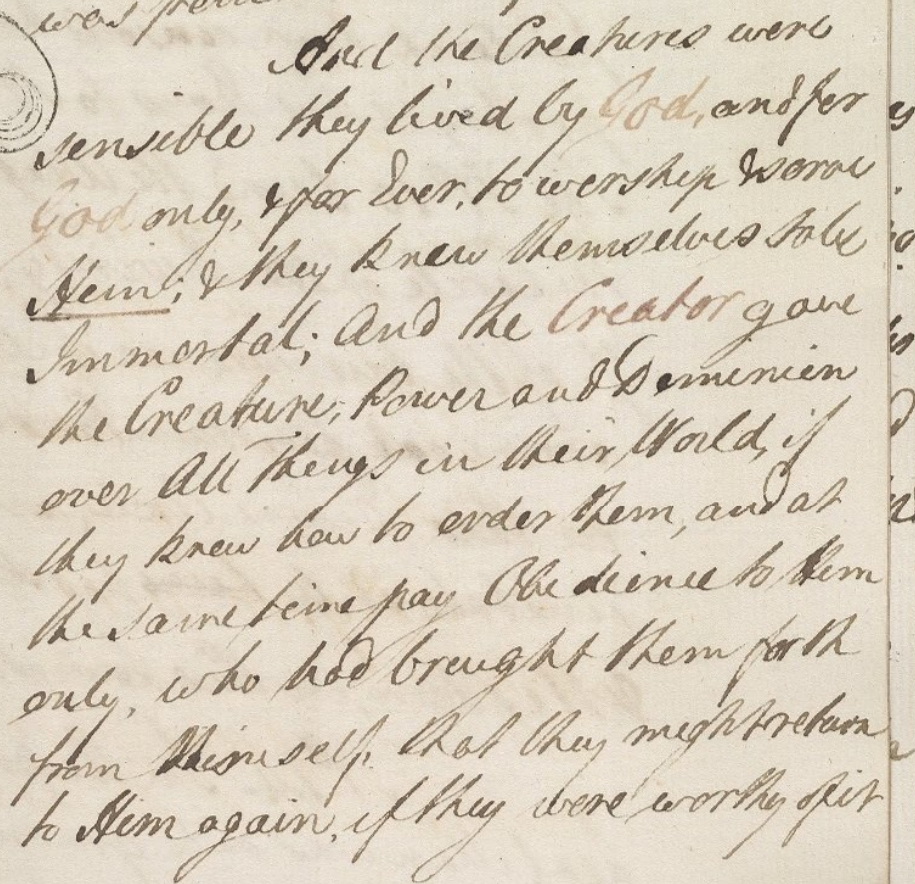 was
And the Creatures were
sensible they lived by God, and for
God only, & for Ever, to worship & serve
Him; & they knew themselves to be
Immortal; And the Creator gave
the Creature, Power and Dominion
over All Things in their World, if
they knew how to order them, and at
the same time pay Obedience to Him
only, who had brought them forth
from Himself, that they might return
to Him again, if they were worthy of it